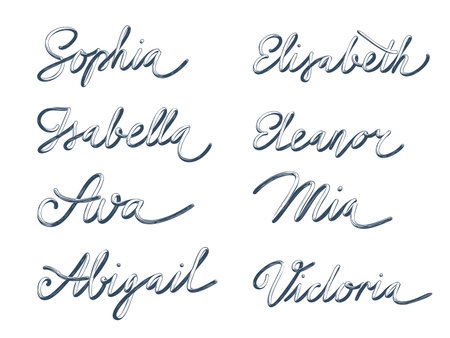 Sophia
Isabella
Ava
Abigail
Elisabeth
Eleanor
Mia
Victoria